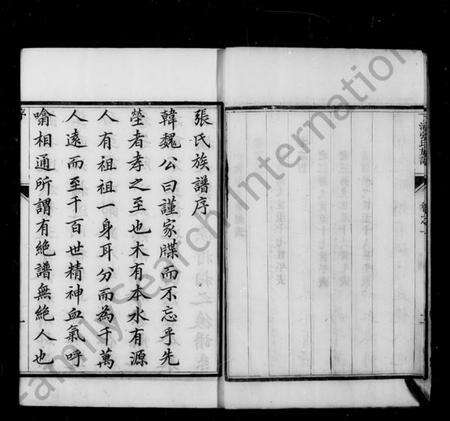 張氏族譜序
韓魏公曰謹家牒而不忘乎先
塋者孝之至也木有本水有源
人有祖祖一身耳分而為千萬
人遠而至千百世精神血氣呼
噏相通所謂有絶譜無絶人也
序
FamilySearch International